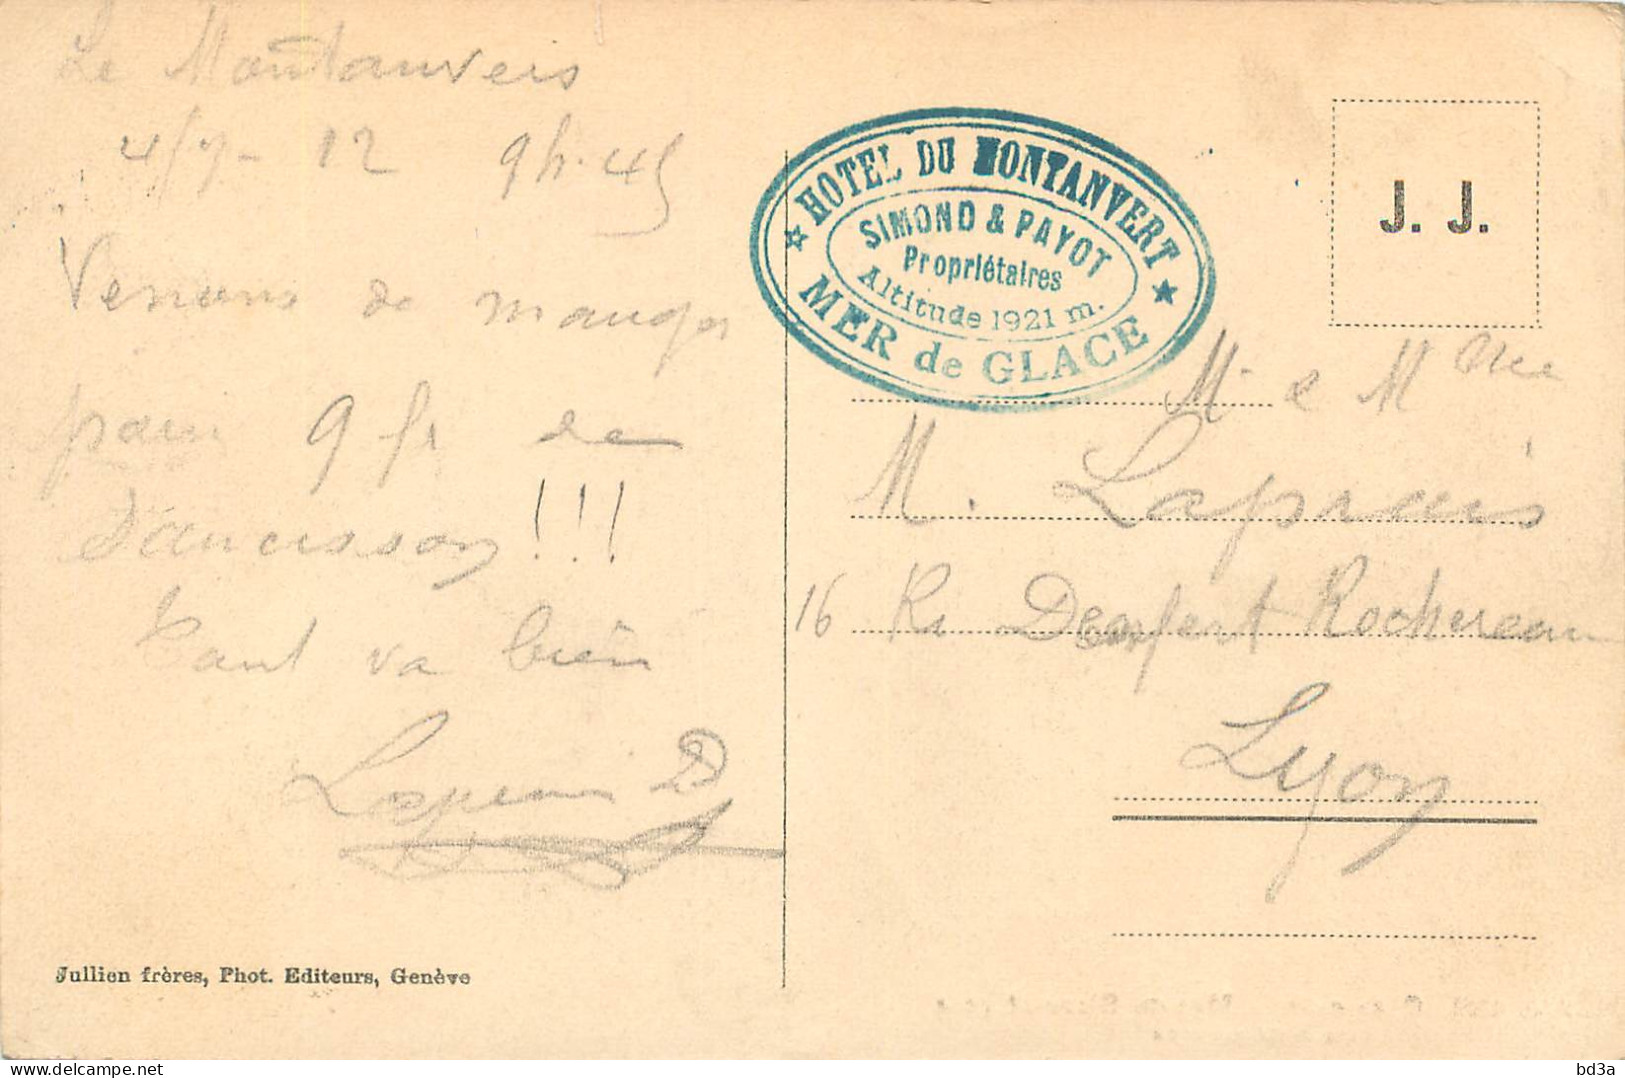 Le Montanvers
4/7- 12 9h.45
Venons de manger
pour 9 fr de
saucisson !!!
Tout va bien
HOTEL DU MONTANVERT
SIMOND & PAYOT
Propriétaires
Altitude 1921 m.
MER de GLACE
J. J.
M. e Mme
M. Laprais
16 R. Denfert Rochereau
Lyon
Jullien frères, Phot. Editeurs, Genève
delcampe.net
bd3a